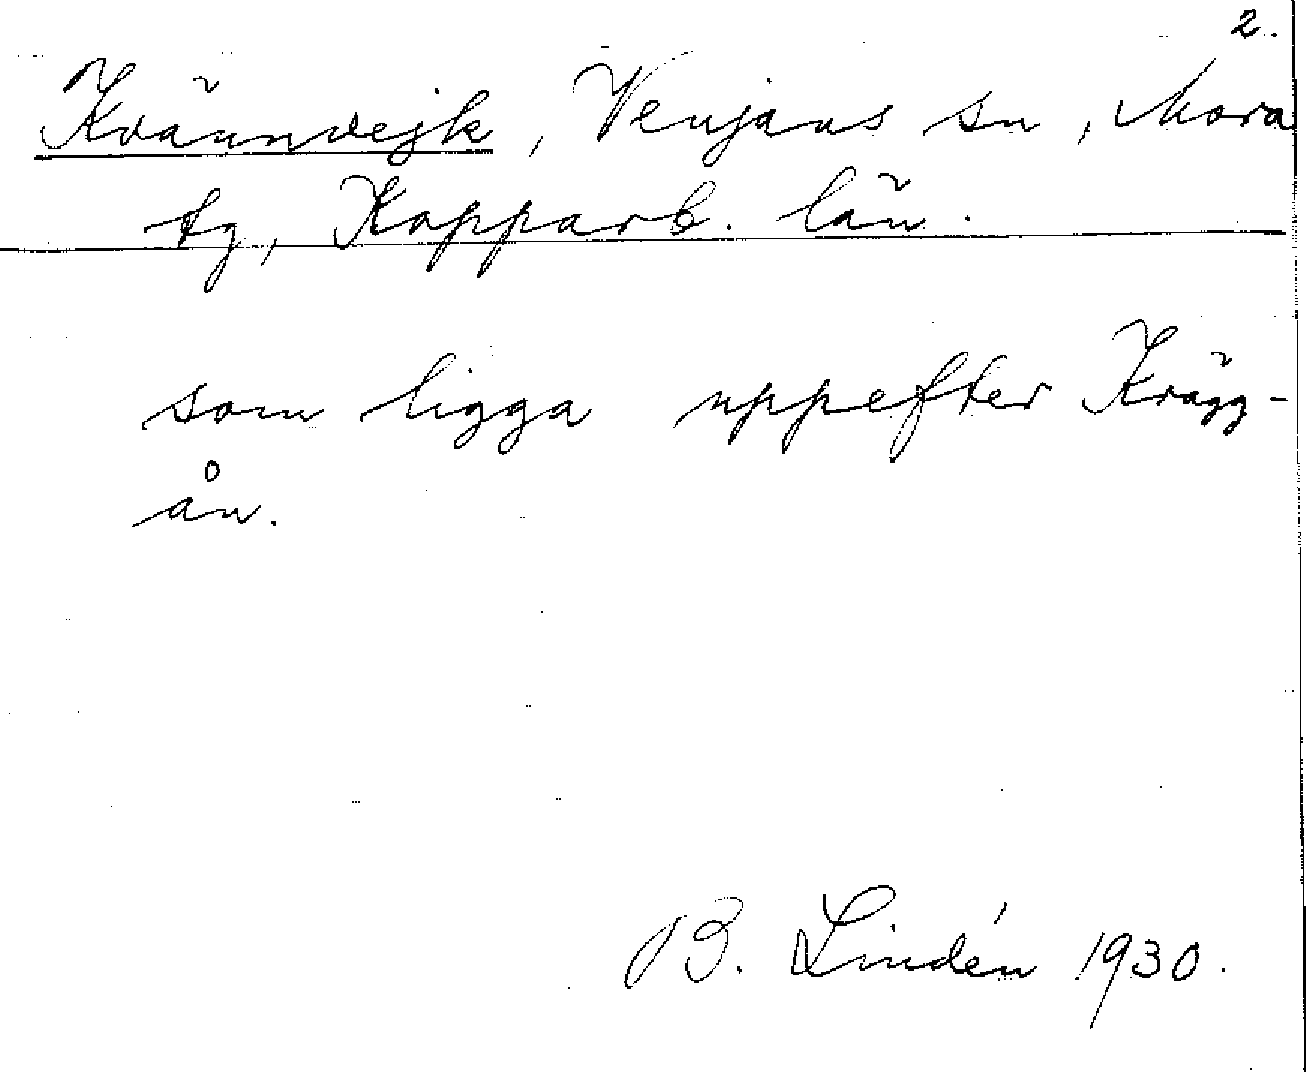 2.
Kvänndejk, Venjans sn, Mora
tg, Kopparb. län.
som ligga uppefter Krägg-
ån.
B. Lindén 1930.